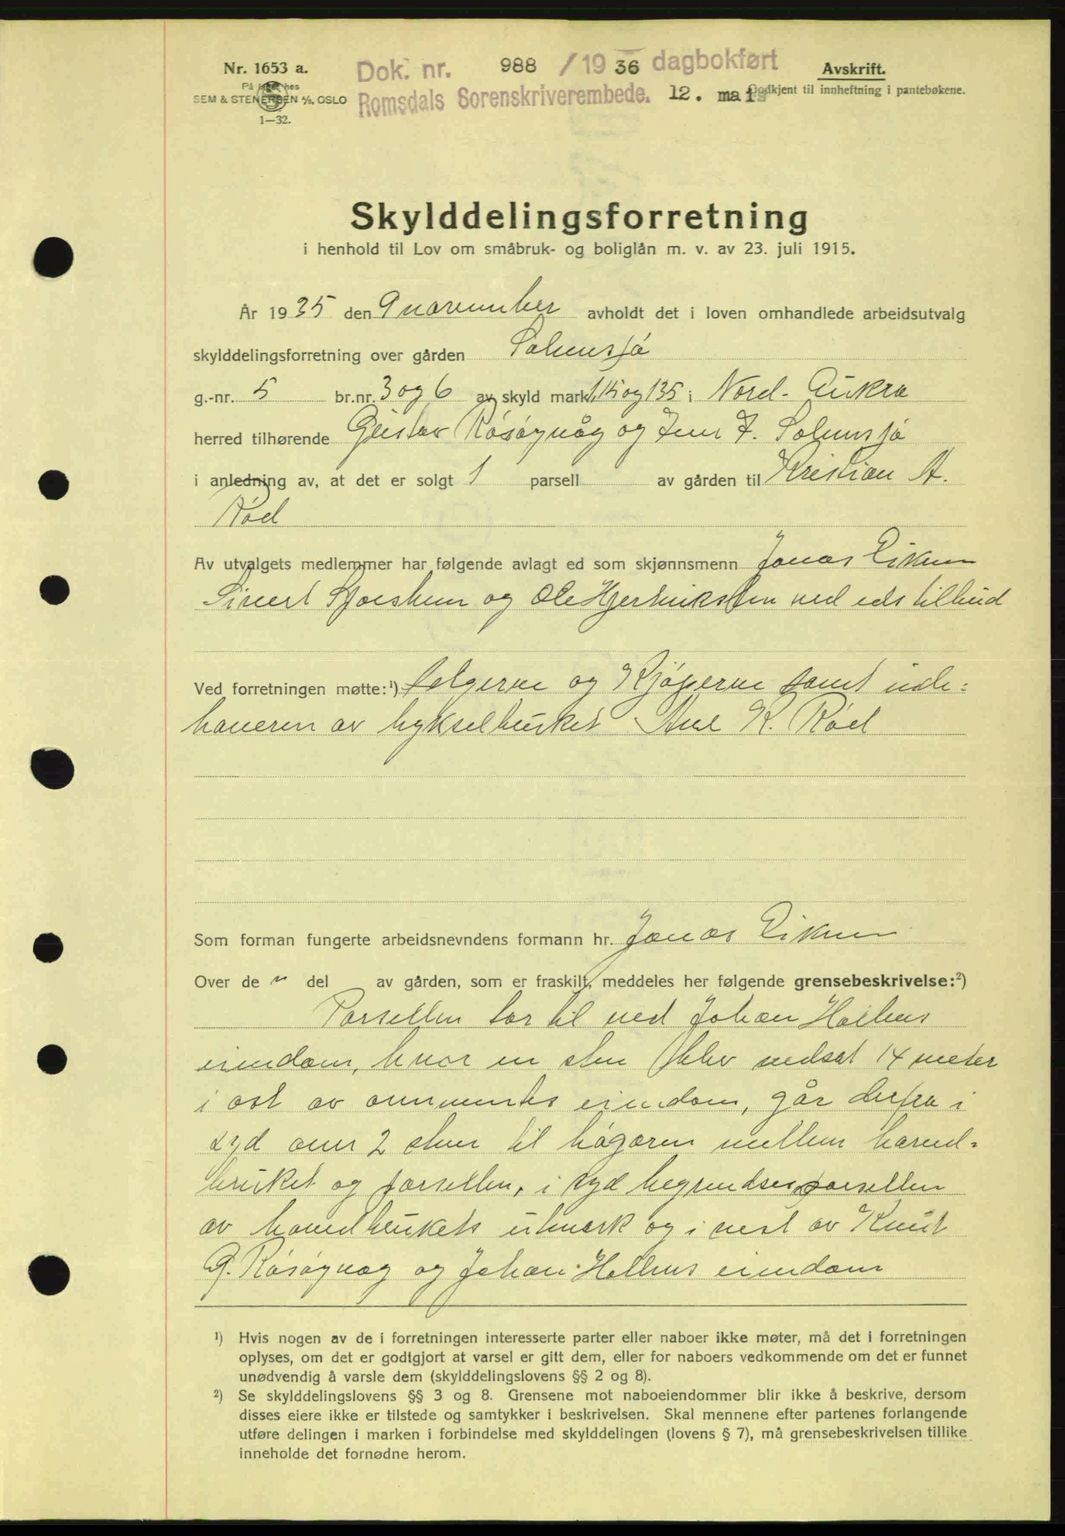 Nr. 1653 a.
Dok. nr. 988 / 1936 dagbokført
Avskrift.
På lager hes
SEM & STENERSEN A/S, OSLO
Romsdals Sorenskriverembede. 12. mai
Godkjent til innheftning i pantebøkene.
1—32.
Skylddelingsforretning
i henhold til Lov om småbruk- og boliglån m. v. av 23. juli 1915.
År 1935 den 9 november avholdt det i loven omhandlede arbeidsutvalg
skylddelingsforretning over gården Solemsjø
g.-nr. 5 br.nr. 3 og 6 av skyld mark 1,15 og 1,35 i Nord-Aukra
herred tilhørende Gustav Røsøgvåg og Jens F. Solemsjø
i anledning av, at det er solgt 1 parsell av gården til Kristian A.
Rød
Av utvalgets medlemmer har følgende avlagt ed som skjønnsmenn Jonas Eikrem
Sivert og Ole Hjertviksten ved eds tilbud
Ved forretningen møtte:¹) selgerne og Kjøperne samt inde-
haveren av bykselbruket K. Rød
Som forman fungerte arbeidsnevndens formann hr. Jonas Eikrem
Over de n del av gården, som er fraskilt, meddeles her følgende grensebeskrivelse:²)
Parsellen tar til ved Johan Holhus
eiendom, hvor en sten blev nedsat 14 meter
i ost av eiendom, går derfra i
syd over 2 stener til hågaren mellem hoved-
bruket og parsellen, i syd begrendses parsellen
av hovedbrukets utmark og i vest av Knut
G. Røsøgvåg og Johan Holhus eiendom
¹) Hvis nogen av de i forretningen interesserte parter eller naboer ikke møter, må det i forretningen
oplyses, om det er godtgjort at varsel er gitt dem, eller for naboers vedkommende om det er funnet
unødvendig å varsle dem (skylddelingslovens §§ 2 og 8).
²) Se skylddelingslovens §§ 3 og 8. Grensene mot naboeiendommer blir ikke å beskrive, dersom
disses eiere ikke er tilstede og samtykker i beskrivelsen. Skal mennene efter partenes forlangende
utføre delingen i marken i forbindelse med skylddelingen (lovens § 7), må grensebeskrivelsen tillike
inneholde det fornødne herom.